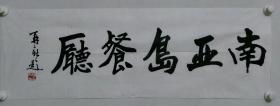 南亚島餐廳